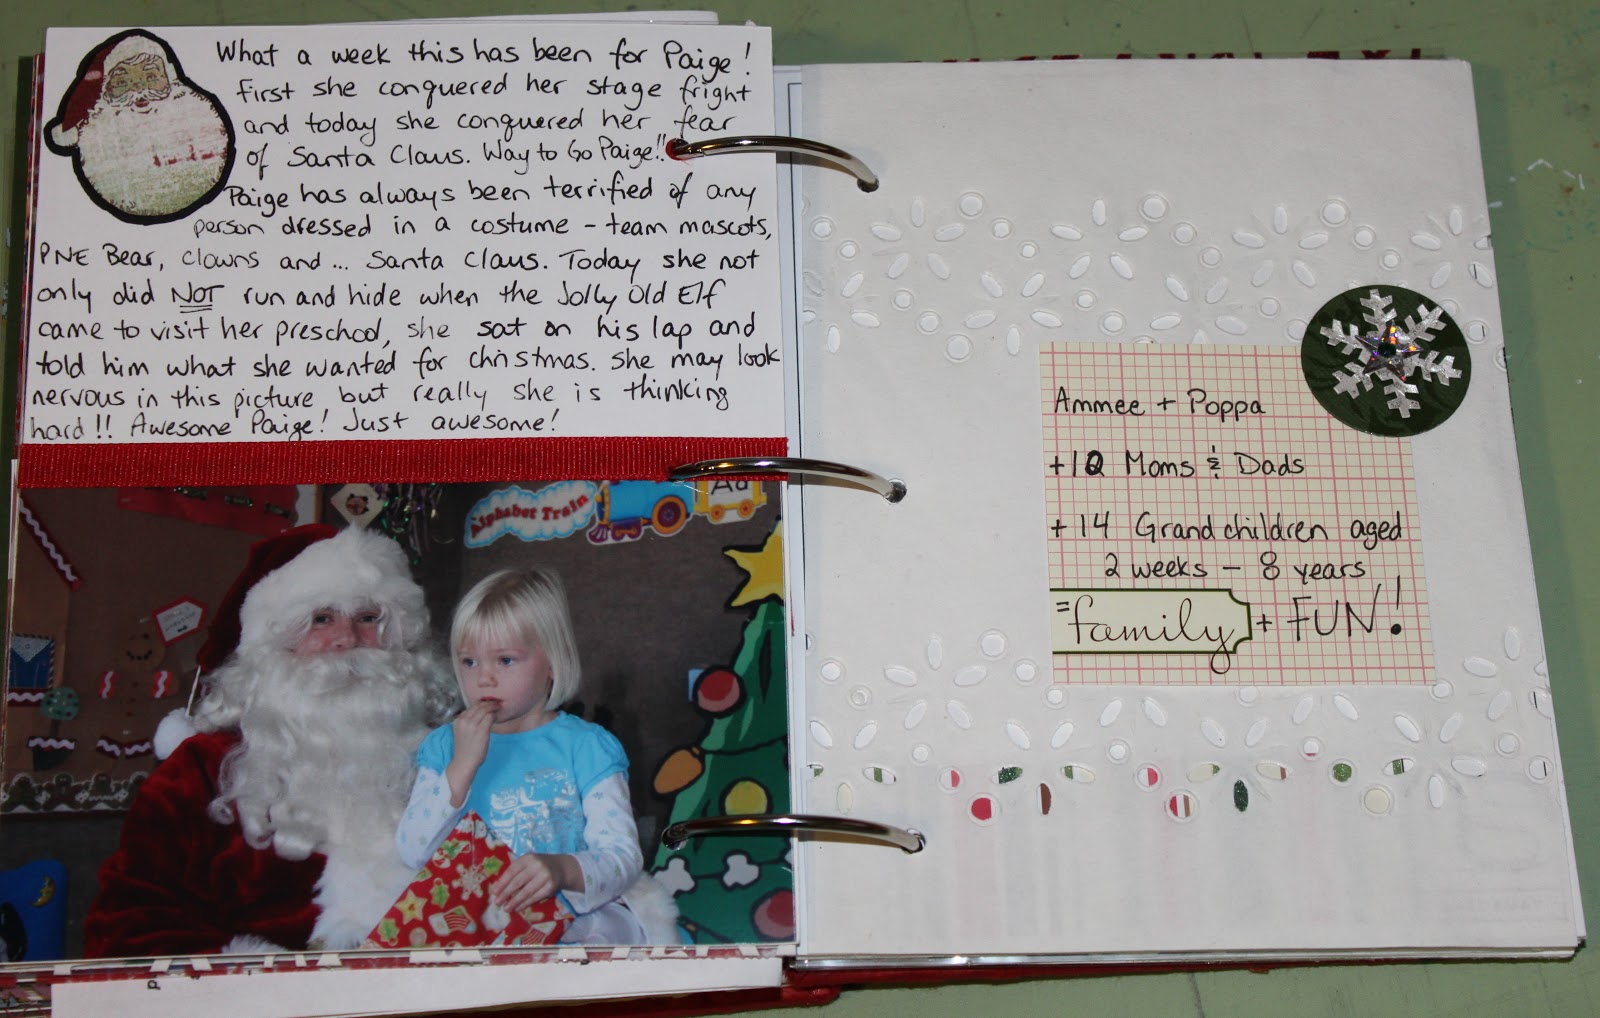 What a week this has been for Paige!
First she conquered her stage fright
and today she conquered her fear
of Santa Claus. Way to Go Paige!!
Paige has always been terrified of any
person dressed in a costume - team mascots,
PNE Bear, clowns and... Santa Claus. Today she not
only did NOT run and hide when the Jolly Old Elf
came to visit her preschool, she sat on his lap and
told him what she wanted for christmas. She may look
nervous in this picture but really she is thinking
hard!! Awesome Paige! Just awesome!
Alphabet Train
Aa
Ammee + Poppa
+12 Moms & Dads
+ 14 Grandchildren aged
2 weeks - 8 years
=family + FUN!